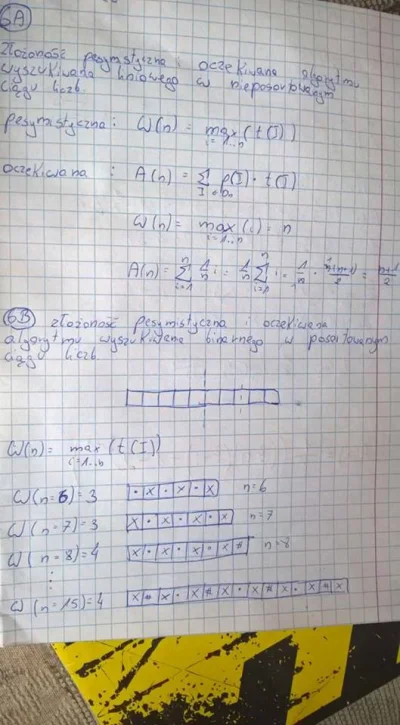 6A
Złożoność pesymistyczna i oczekiwana algorytmu
wyszukiwana liniowego w nieposortowanym
ciągu liczb.
pesymistyczna: W(n) = max i=1..n (t(I))
oczekiwana : A(n) = Σ I∈Dn p(I) · t(I)
W(n) = max i=1..n (i) = n
A(n) = Σ i=1 n 1/n i = 1/n Σ i=1 n i = 1/n · n(n+1)/2 = n+1/2
6B złożoność pesymistyczna i oczekiwana
algorytmu wyszukiwana binarnego w posortowanym
ciągu liczb
W(n) = max i=1..n (t(I))
W(n=6)=3 · x · x · x n=6
W(n=7)=3 x · x · x · x n=7
W(n=8)=4 n=8
⋮
W(n=15)=4